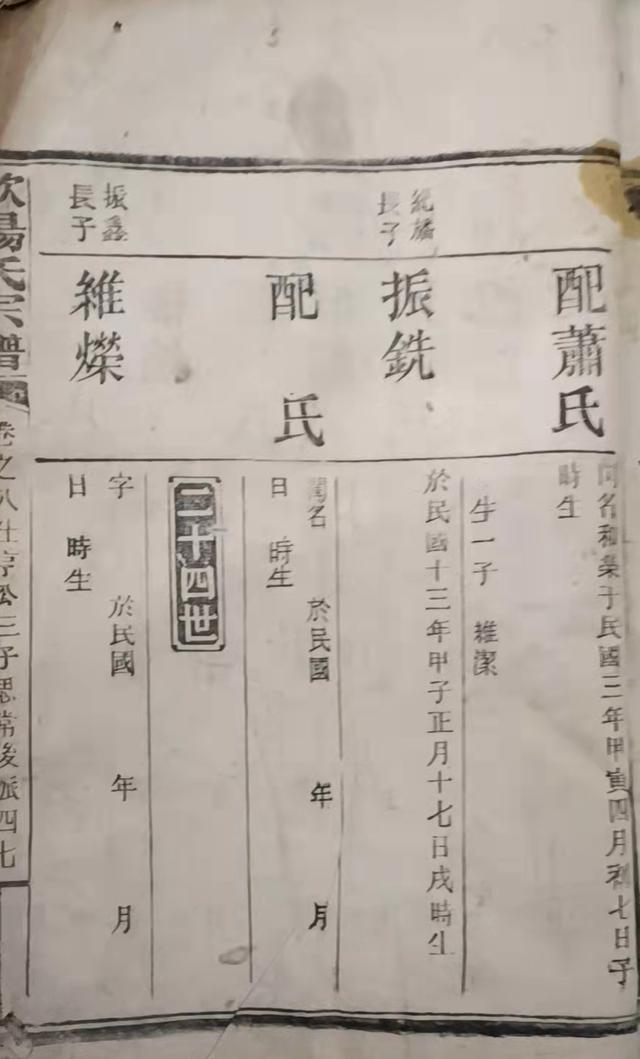 配蕭氏
閨名和榮于民國三年甲寅四月初七日子
時生
生一子 維潔
長子
振銑
於民國十三年甲子正月十七日戌時生
配 氏
閨名 於民國 年 月
日 時生
二十四世
振鑫
長子
維爃
字 於民國 年 月
日 時生
歐陽氏宗譜
卷之八仕亨公三子思常後派四七